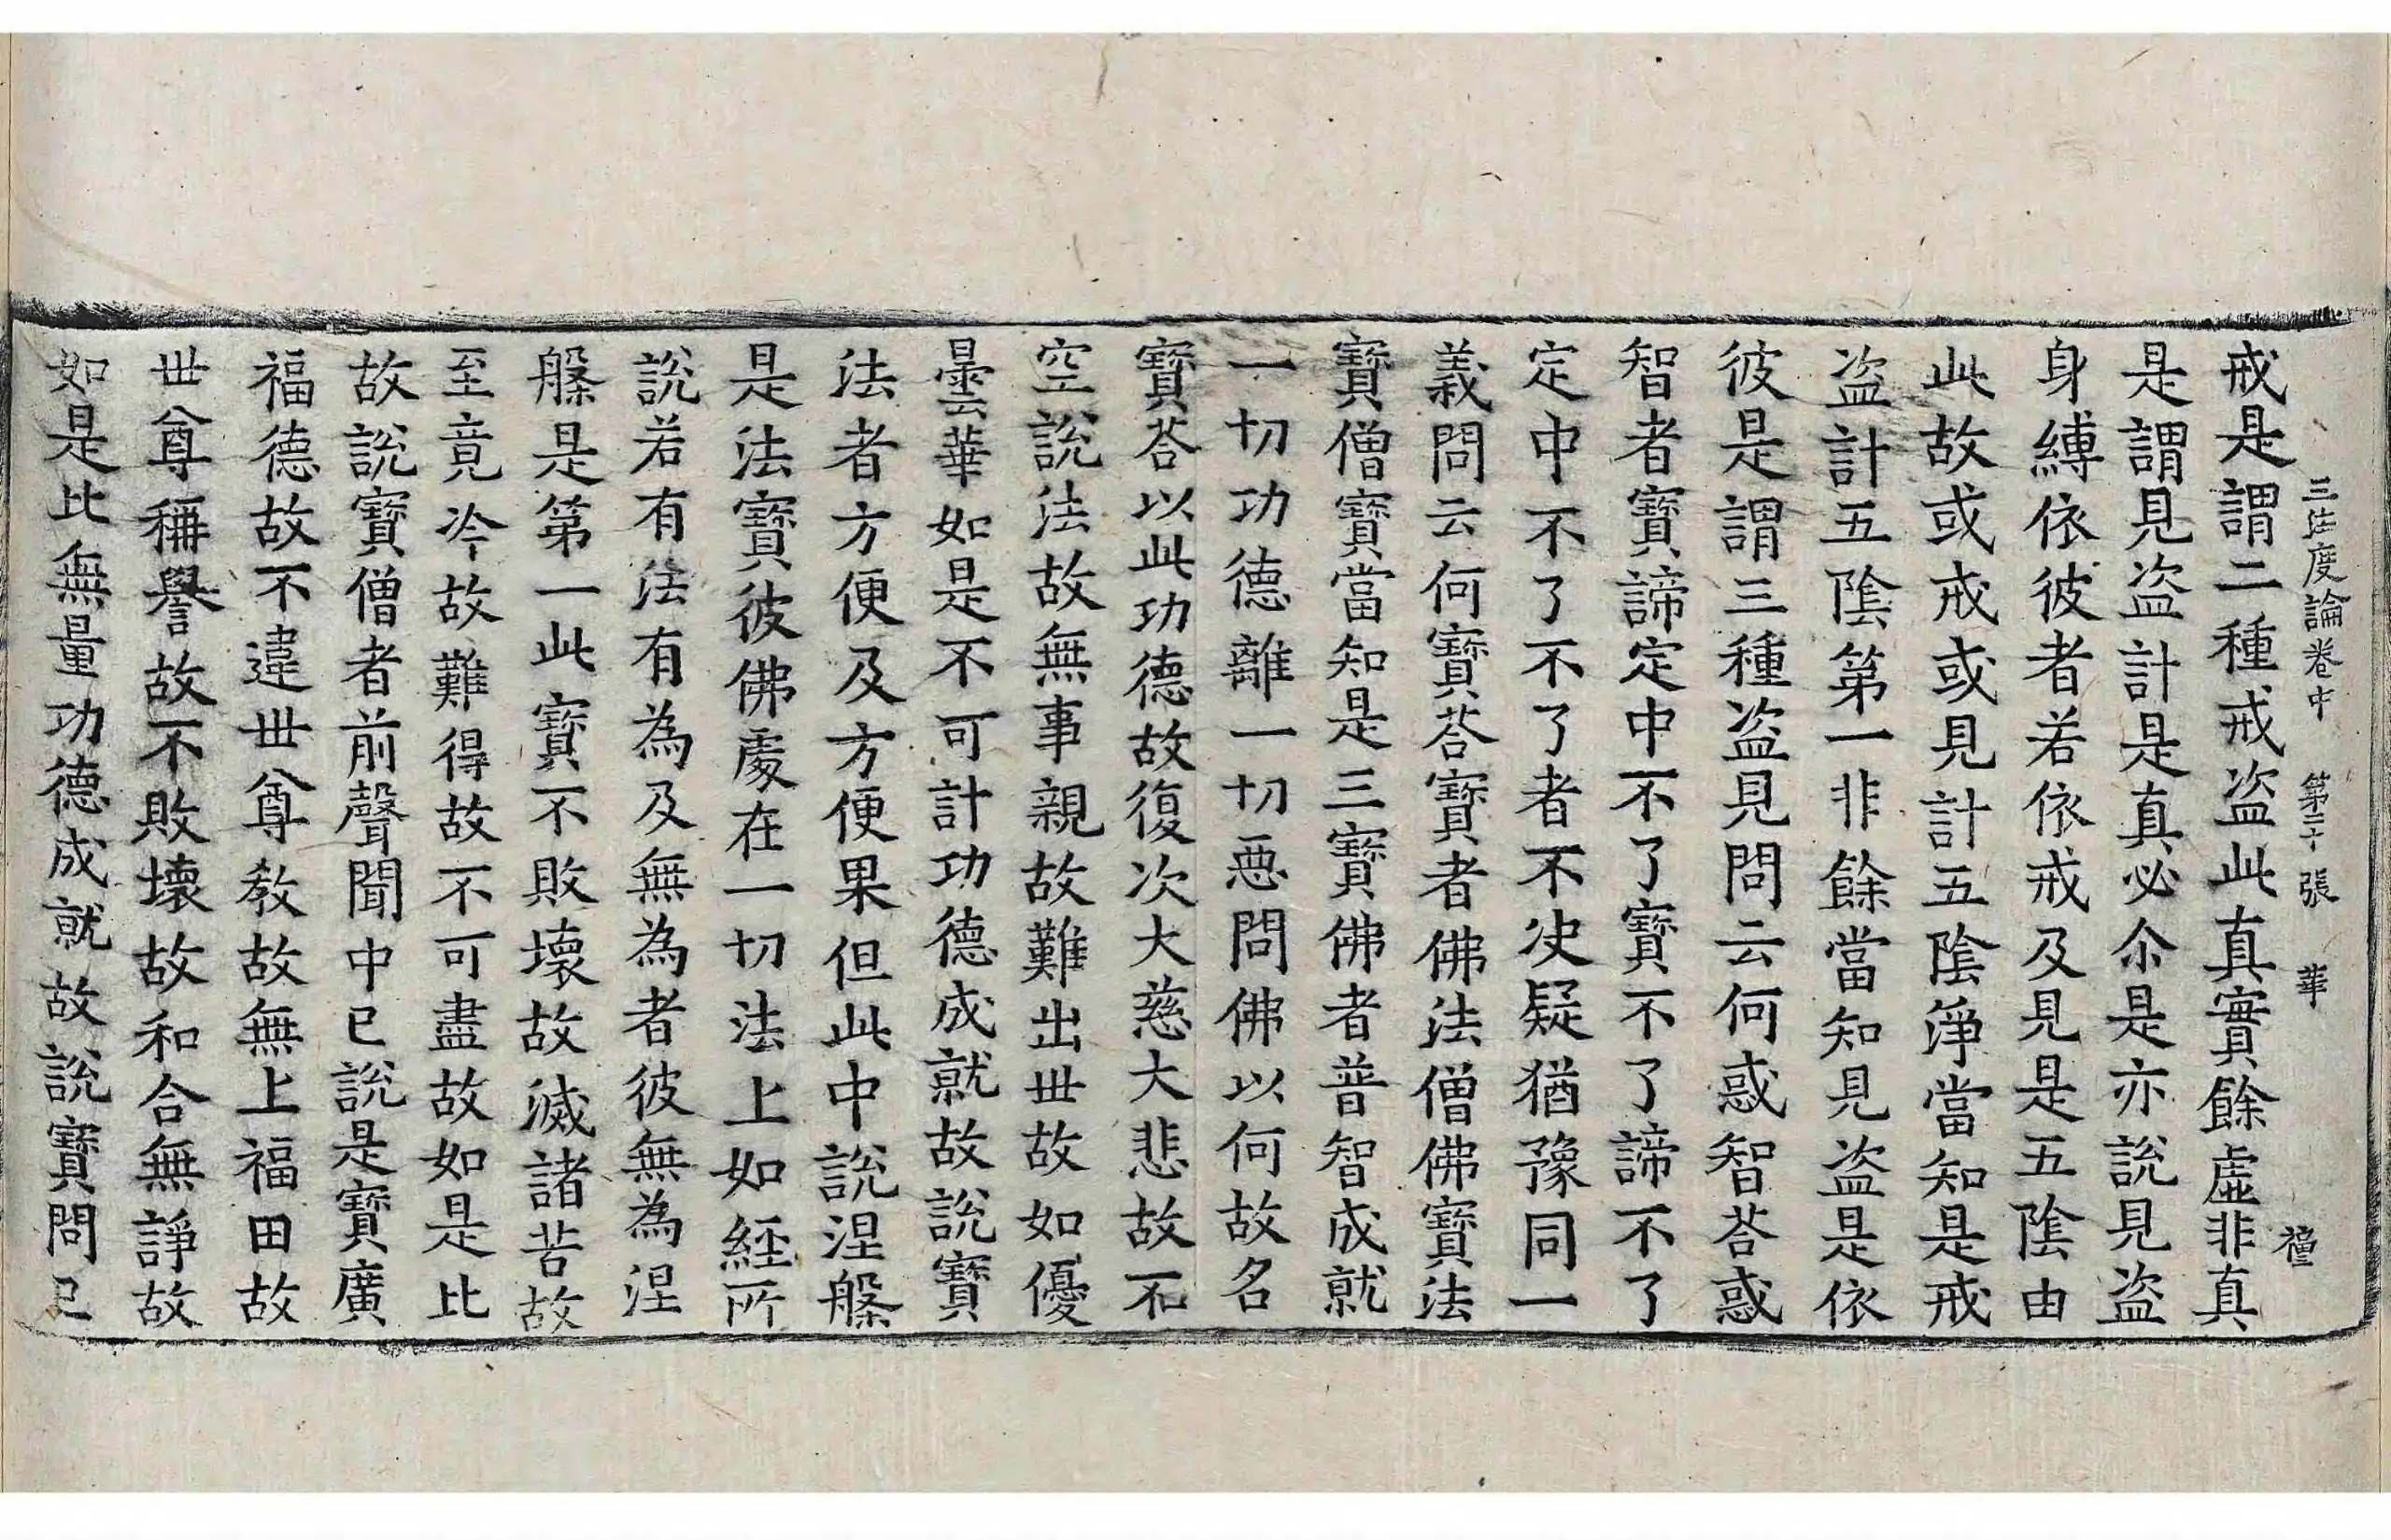 三法度論卷中　第二十張　華　禋
戒是謂二種戒盜此真實餘虛非真
是謂見盜計是真必尒是亦說見盜
身縛依彼者若依戒及見是五陰由
此故或戒或見計五陰淨當知是戒
盜計五陰第一非餘當知見盜是依
彼是謂三種盜見問云何惑智荅惑
智者寶諦定中不了寶不了諦不了
定中不了不了者不決疑猶豫同一
義問云何寶荅寶者佛法僧佛寶法
寶僧寶當知是三寶佛者普智成就
一切功德離一切惡問佛以何故名
寶荅以此功德故復次大慈大悲故不
空說法故無事親故難出世故如優
曇華如是不可計功德成就故說寶
法者方便及方便果但此中說涅槃
是法寶彼佛處在一切法上如經所
說若有法有為及無為者彼無為涅
槃是第一此寶不敗壞故滅諸苦故
至竟冷故難得故不可盡故如是比
故說寶僧者前聲聞中已說是寶廣
福德故不違世尊教故無上福田故
世尊稱譽故不敗壞故和合無諍故
如是比無量功德成就故說寶問已